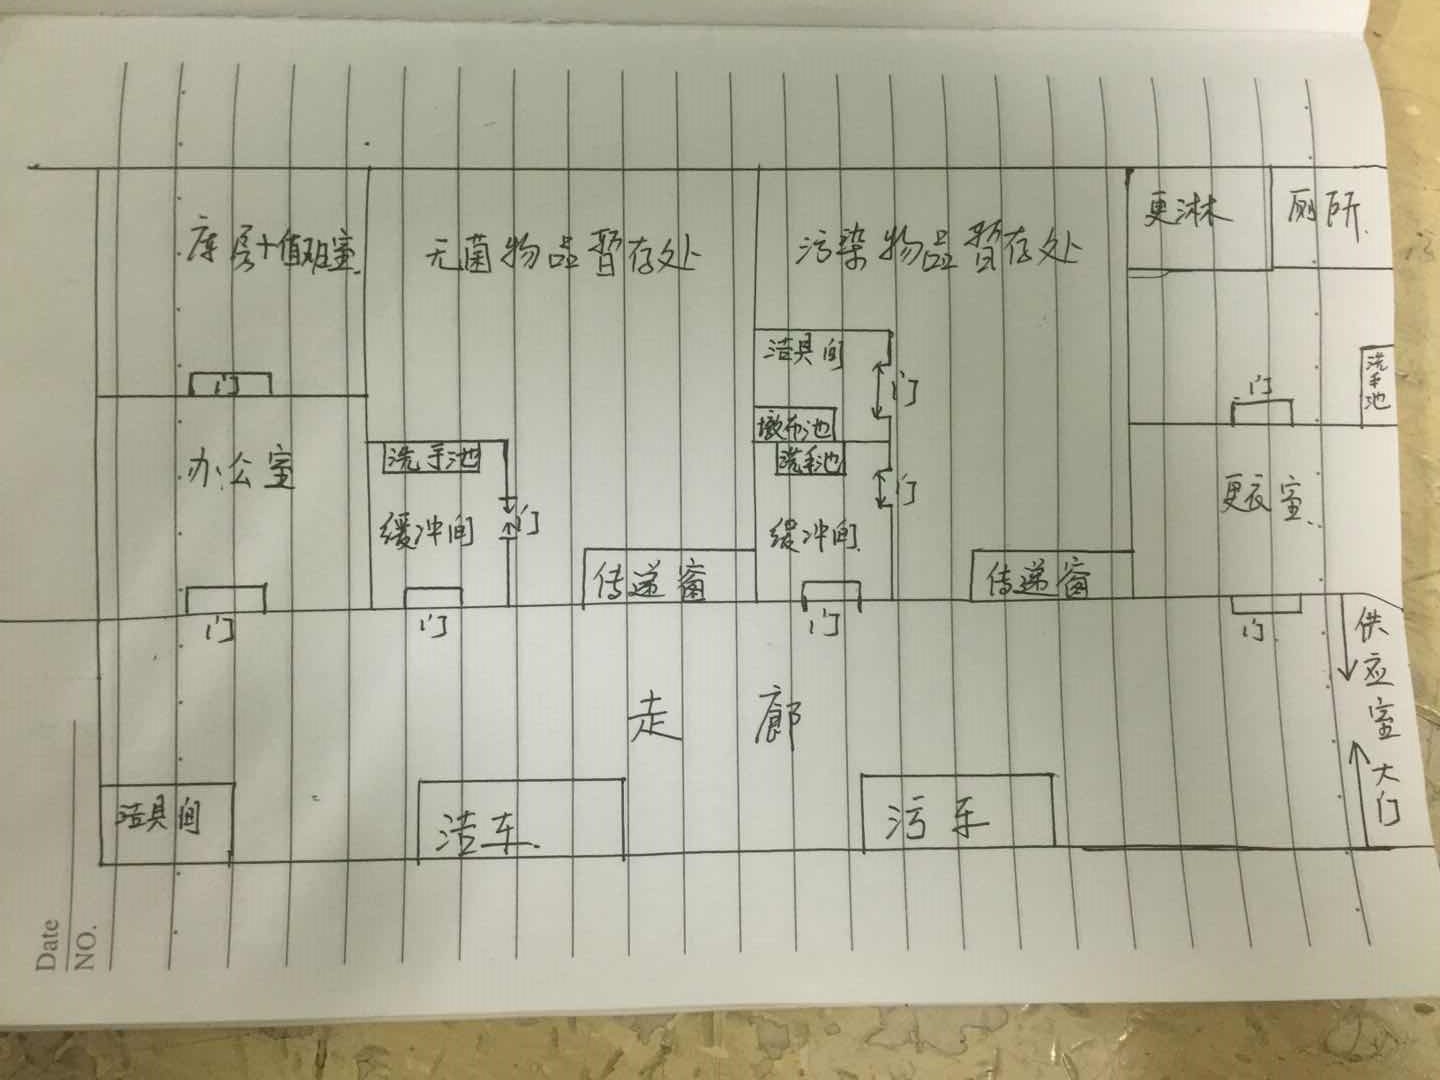 库房+值班室
无菌物品暂存处
污染物品暂存处
更淋
厕所
洁具间
门
洗手池
门
门
墩布池
办公室
洗手池
洗手池
门
更衣室
缓冲间
门
缓冲间
传递窗
传递窗
门
门
门
门
供应室大门
走廊
洁具间
洁车
污车
Date
NO.